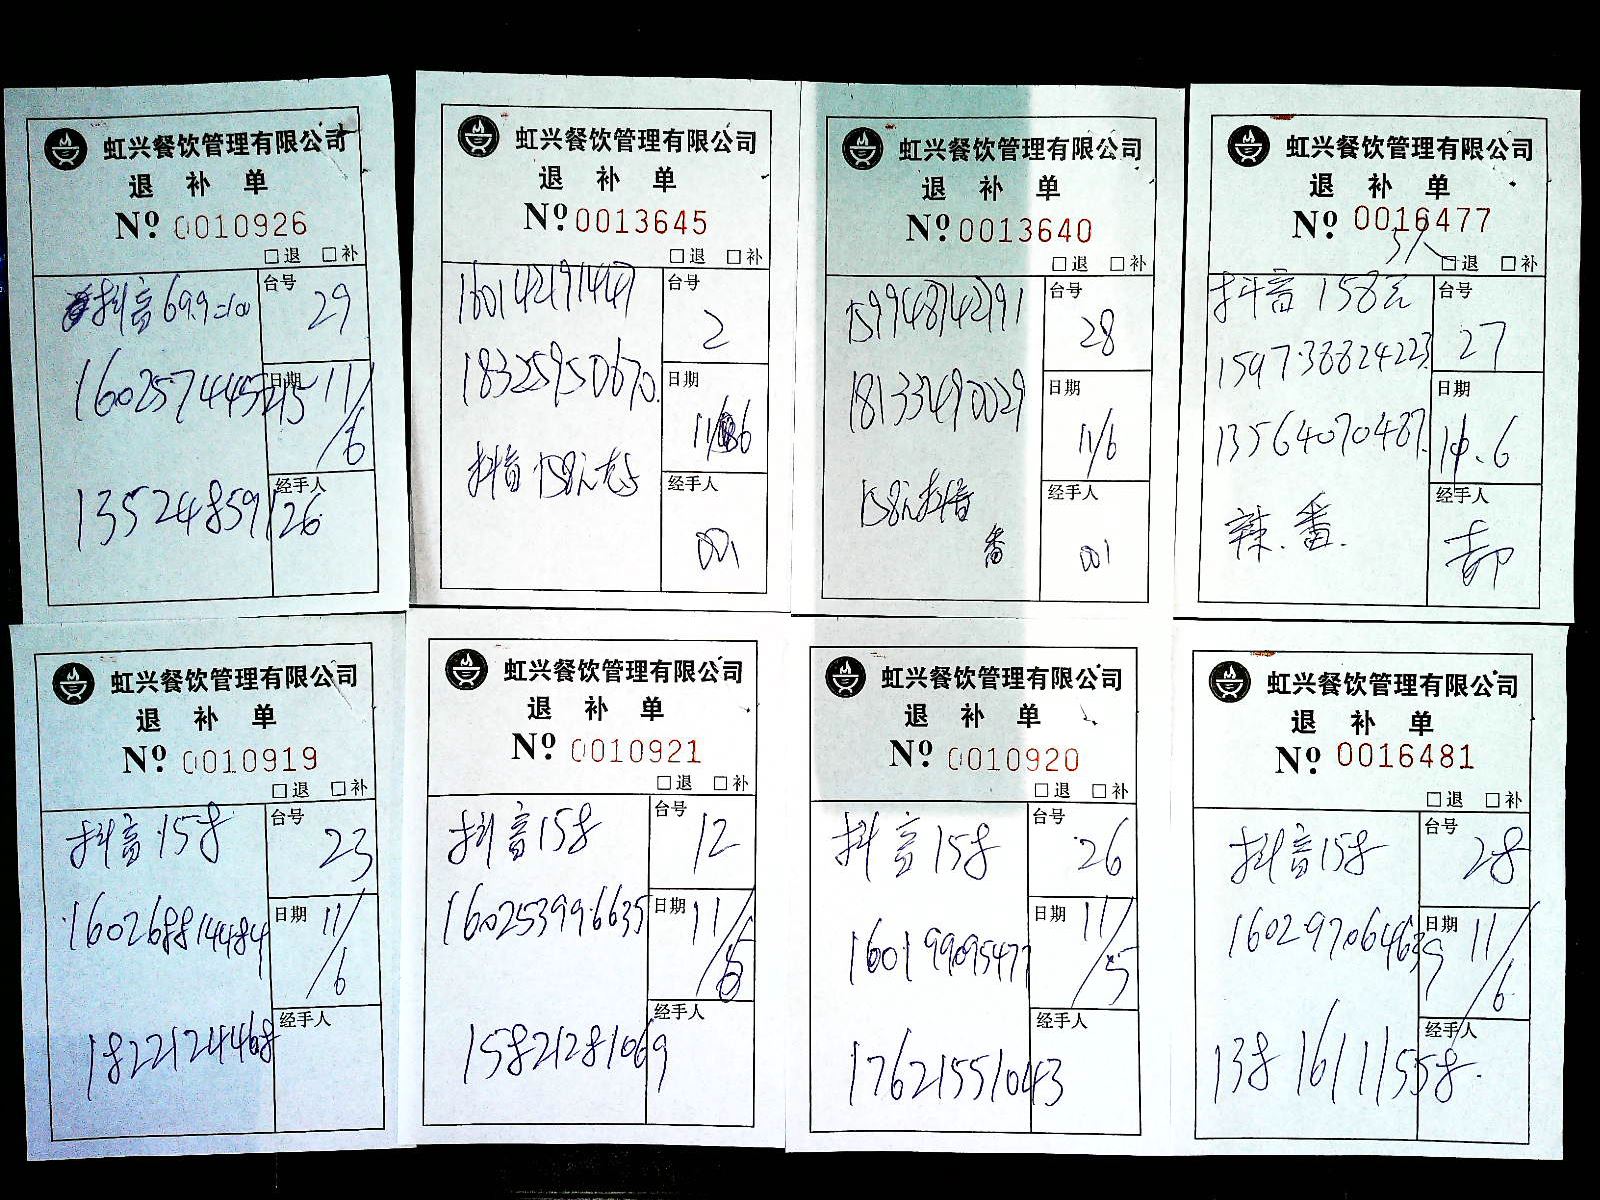 虹兴餐饮管理有限公司
退 补 单
Nº 0010926
□退 □补
抖音69.9=100
台号
29
160257445215
日期
11/6
13524859126
经手人
虹兴餐饮管理有限公司
退 补 单
Nº 0013645
□退 □补
160142191447
台号
2
18325950670.
日期
11/6
抖音158元
经手人
001
虹兴餐饮管理有限公司
退 补 单
Nº 0013640
□退 □补
159948742791
台号
28
18133490029
日期
11/6
158元抖音
番
经手人
001
虹兴餐饮管理有限公司
退 补 单
Nº 0016477
□退 □补
抖音158元
台号
27
159738824223
日期
13564070487.
11.6
辣.番.
经手人
郝
虹兴餐饮管理有限公司
退 补 单
Nº 0010919
□退 □补
抖音158
台号
23
160268814484
日期
11/6
1822124468
经手人
虹兴餐饮管理有限公司
退 补 单
Nº 0010921
□退 □补
抖音158
台号
12
160253996635
日期
11/6
15821281069
经手人
虹兴餐饮管理有限公司
退 补 单
Nº 0010920
□退 □补
抖音158
台号
26
160199095477
日期
11/5
17621551043
经手人
虹兴餐饮管理有限公司
退 补 单
Nº 0016481
□退 □补
抖音158
台号
28
160297064639
日期
11/6
13816111558.
经手人